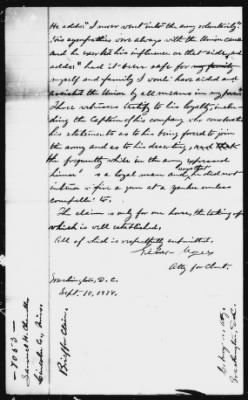 He adds "I never went into the army voluntarily"
"his sympathies was always with the Union cause
and he exerted his influence on that side, and
adds "had it been safe for my family
myself and family I would have aided and
assisted the Union by all means in my power"
Three witnesses testify to his loyalty, including
the Captain of his company who
his statements as to his being forced to join
the army and as to his deserting, and that
he frequently while in the army expressed
himself as a loyal man and did not
intend to fire a gun at a yankee unless
compelled to.
The claim is only for one horse, the taking of
which is well established.
All of which is respectfully submitted.
Atty for Clmt.
Washington, D.C.
Sept. 10, 1888.
Brief for Claim.
- 7053 -
Samuel H.
Lincoln Co,
Atty,
Washington, D.C.